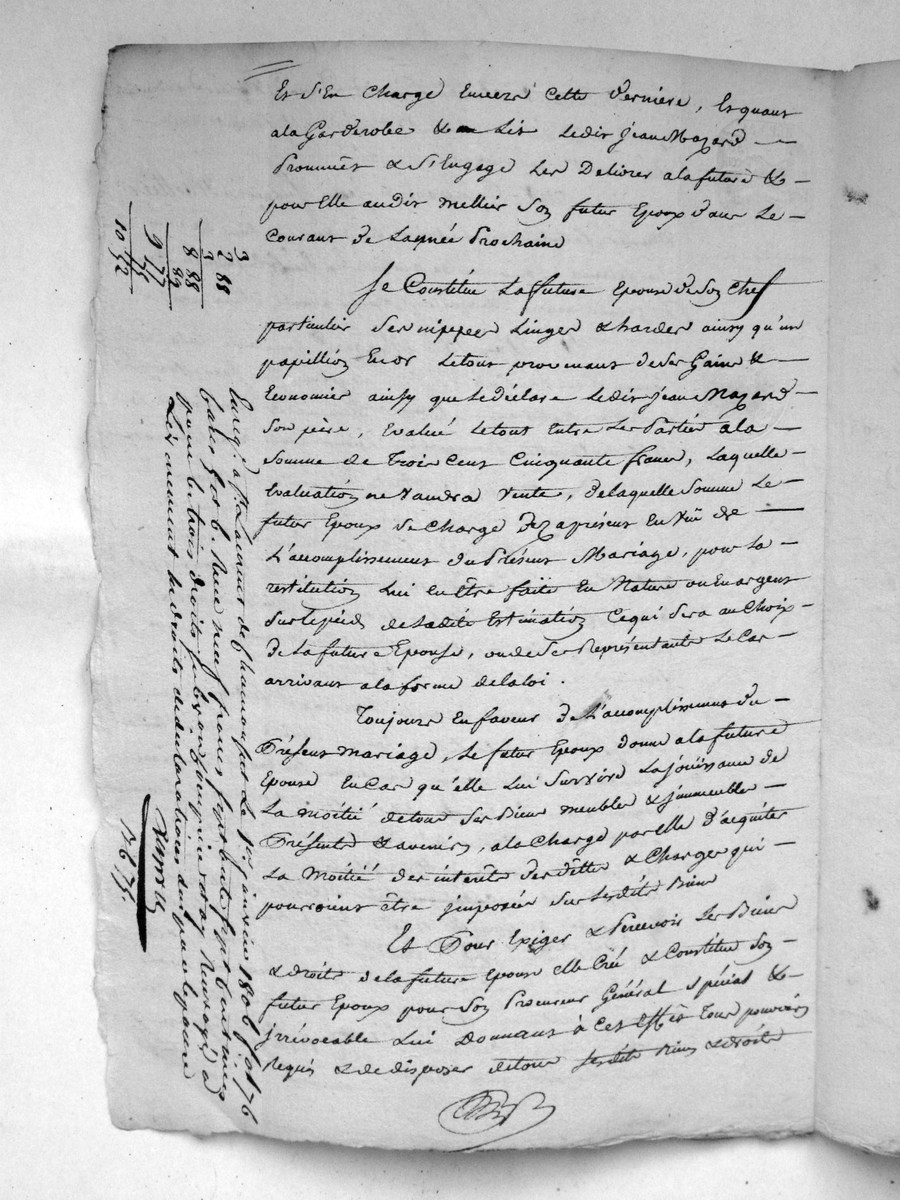 Et s'en charge envers cette derniere, Et quant
a la Garderobe & Lit Ledit jean Mazard
Prommêt & s'Engage Les Delivrer a la future &
pour Elle audit mellier Son futur Epoux dans Le
Courant de L'année Prochaine
Se Constitue La future Epouse de Son Chef
particulier Ses nippes Linges & hardes ainsy qu'un
papillion En or Le tout provenant de Ses Gains &
Economies ainsy que Le déclare Ledit jean Mazard
Son père, Evalué Le tout Entre Les Parties a la
Somme de Trois Cent Cinquante francs, Laquelle
Evaluation ne Vaudra Vente, de laquelle Somme Le
futur Epoux Se Charge Dez a présent En Vüe de
L'acomplissement du Présent Mariage, pour La
restitution Lui en être faite En Nature ou En argent
Sur le pied de Ladite Estimation Ce qui Sera au Choix
de La future Epouse, ou de Ses Représentants Le Cas
arrivant a la forme de la loi.
Toujours En faveur de L'acomplissement du
Présent mariage, Le futur Epoux donne a la future
Epouse En Cas qu'elle Lui Survive La joüissance de
La moitié de tous Ses Biens meubles & jmmeubles
Présents & avenirs, a la Charge par elle d'acquiter
La Moitié des interêts des dettes & Charges qui
pourroient être jmposées Sur Lesdits Biens
Et Pour Exiger & Percevoir Les Biens
& droits de la future Epouse elle Créé & Constitue Son
futur Epoux pour Son Procureur Général Spécial &
jrrévocable Lui Donnant à Cet Effet Tous pouvoirs
Requis & de disposer de tous Lesdits Biens & droits
3
2 88
3
8 88
89
9 77
75
10 52
Enreg. a St Laurent de Chamousset Le 1er janvier 1806 fol 76
pour Les trois droits
Les droits de declarations